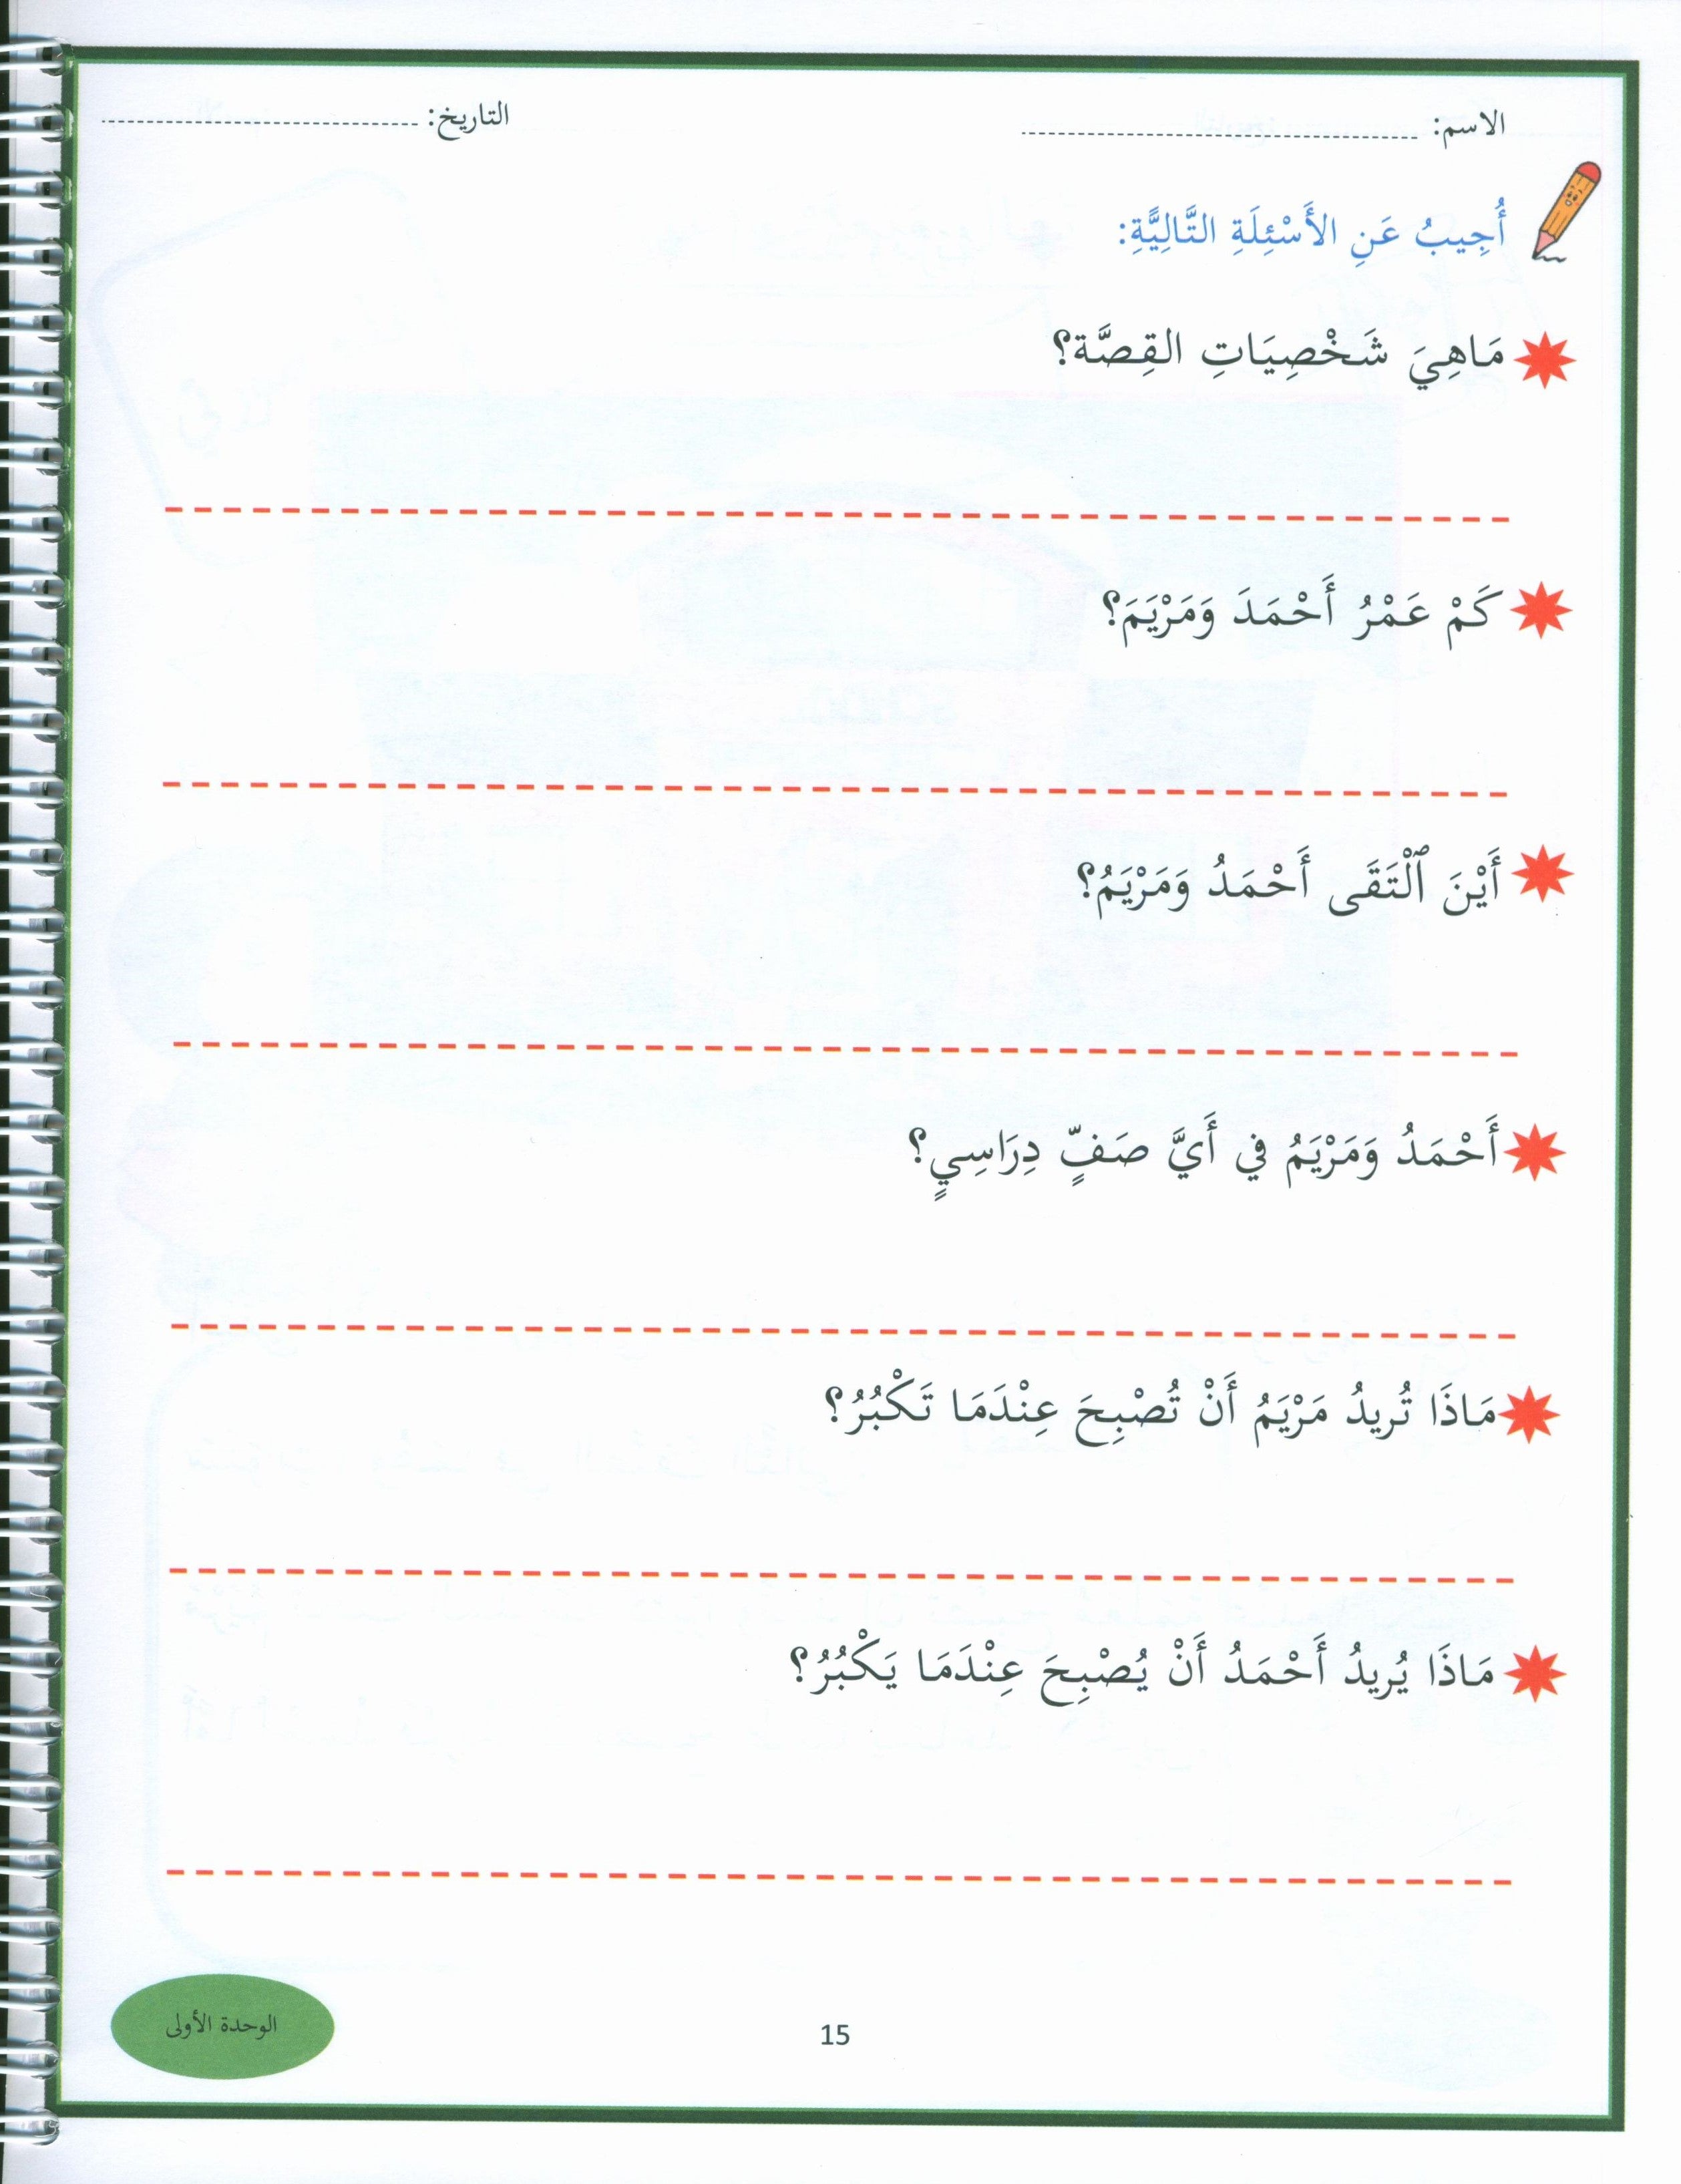 الاسم: التاريخ:
أُجِيبُ عَنِ الأَسْئِلَةِ التَّالِيَّةِ:
مَاهِيَ شَخْصِيَاتِ القِصَّة؟
كَمْ عَمْرُ أَحْمَدَ وَمَرْيَمَ؟
أَيْنَ ٱلْتَقَى أَحْمَدُ وَمَرْيَمُ؟
أَحْمَدُ وَمَرْيَمُ في أَيَّ صَفٍّ دِرَاسِيٍ؟
مَاذَا تُرِيدُ مَرْيَمُ أَنْ تُصْبِحَ عِنْدَمَا تَكْبُرُ؟
مَاذَا يُرِيدُ أَحْمَدُ أَنْ يُصْبِحَ عِنْدَمَا يَكْبُرُ؟
15
الوحدة الأولى